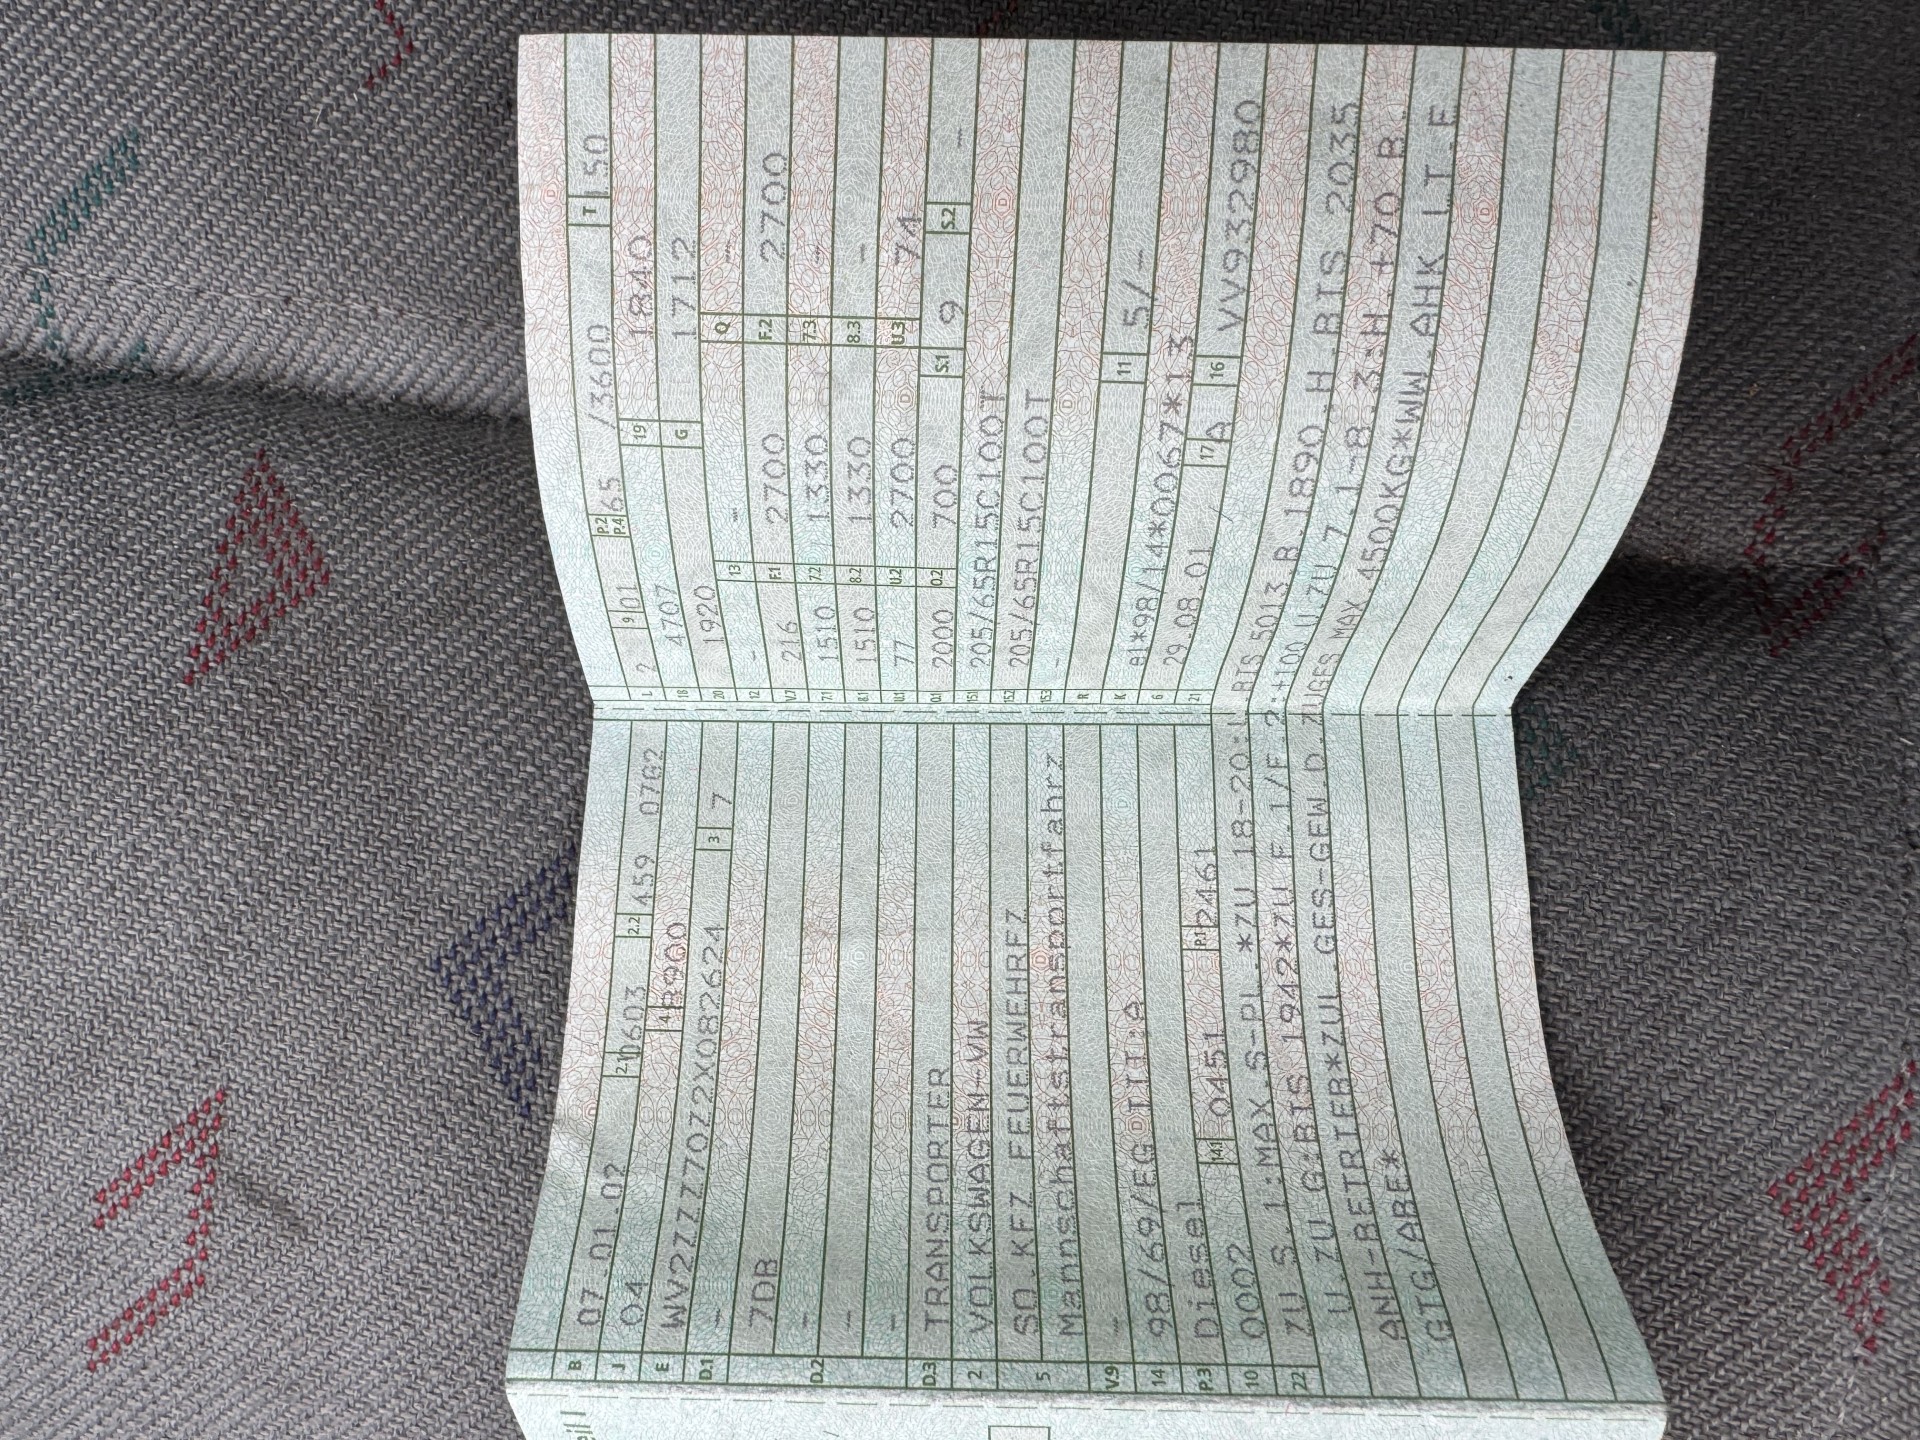 B 07.01.02 2.1 0603 2.2 459 0762
J 04 4 48900
E WV2ZZZ70Z2X082624 3 7
D.1 -
70B
D.2 -
-
-
D.3 TRANSPORTER
2 VOLKSWAGEN-VW
5 SO.KFZ FEUERWEHRFZ
Mannschaftstransportfahrz
V.9 -
14 98/69/EG III;A
P.3 Diesel 14.1 0451 P.1 2461
10 0002
L 2 9 01 P.2 P.4 65 /3600 T 150
18 4707 19 1840
20 1920 G 1712
12 - 13 -- Q ---
V.7 216 F.1 2700 F.2 2700
7.1 1510 7.2 1330 7.3 -
8.1 1510 8.2 1330 8.3 -
U.1 77 U.2 2700 U.3 74
O.1 2000 O.2 700 S.1 9 S.2 --
15.1 205/65R15C100T
15.2 205/65R15C100T
15.3 -
R 11 5/-
K e1*98/14*00067*13
6 29.08.01 / 17 A 16 VV932980
21
22 ZU S.1:MAX.S-PL.*ZU 18-20: BIS 5013 B.1890 H.BIS 2035
U.ZU G:BIS 1942*ZU F.1/F.2:+100 U.ZU 7.1-8.3:H.+70 B.
ANH-BETRIEB*ZUL.GES-GEW.D.ZUGES MAX.4500KG*WW.AHK LT.E
GTG/ABE*